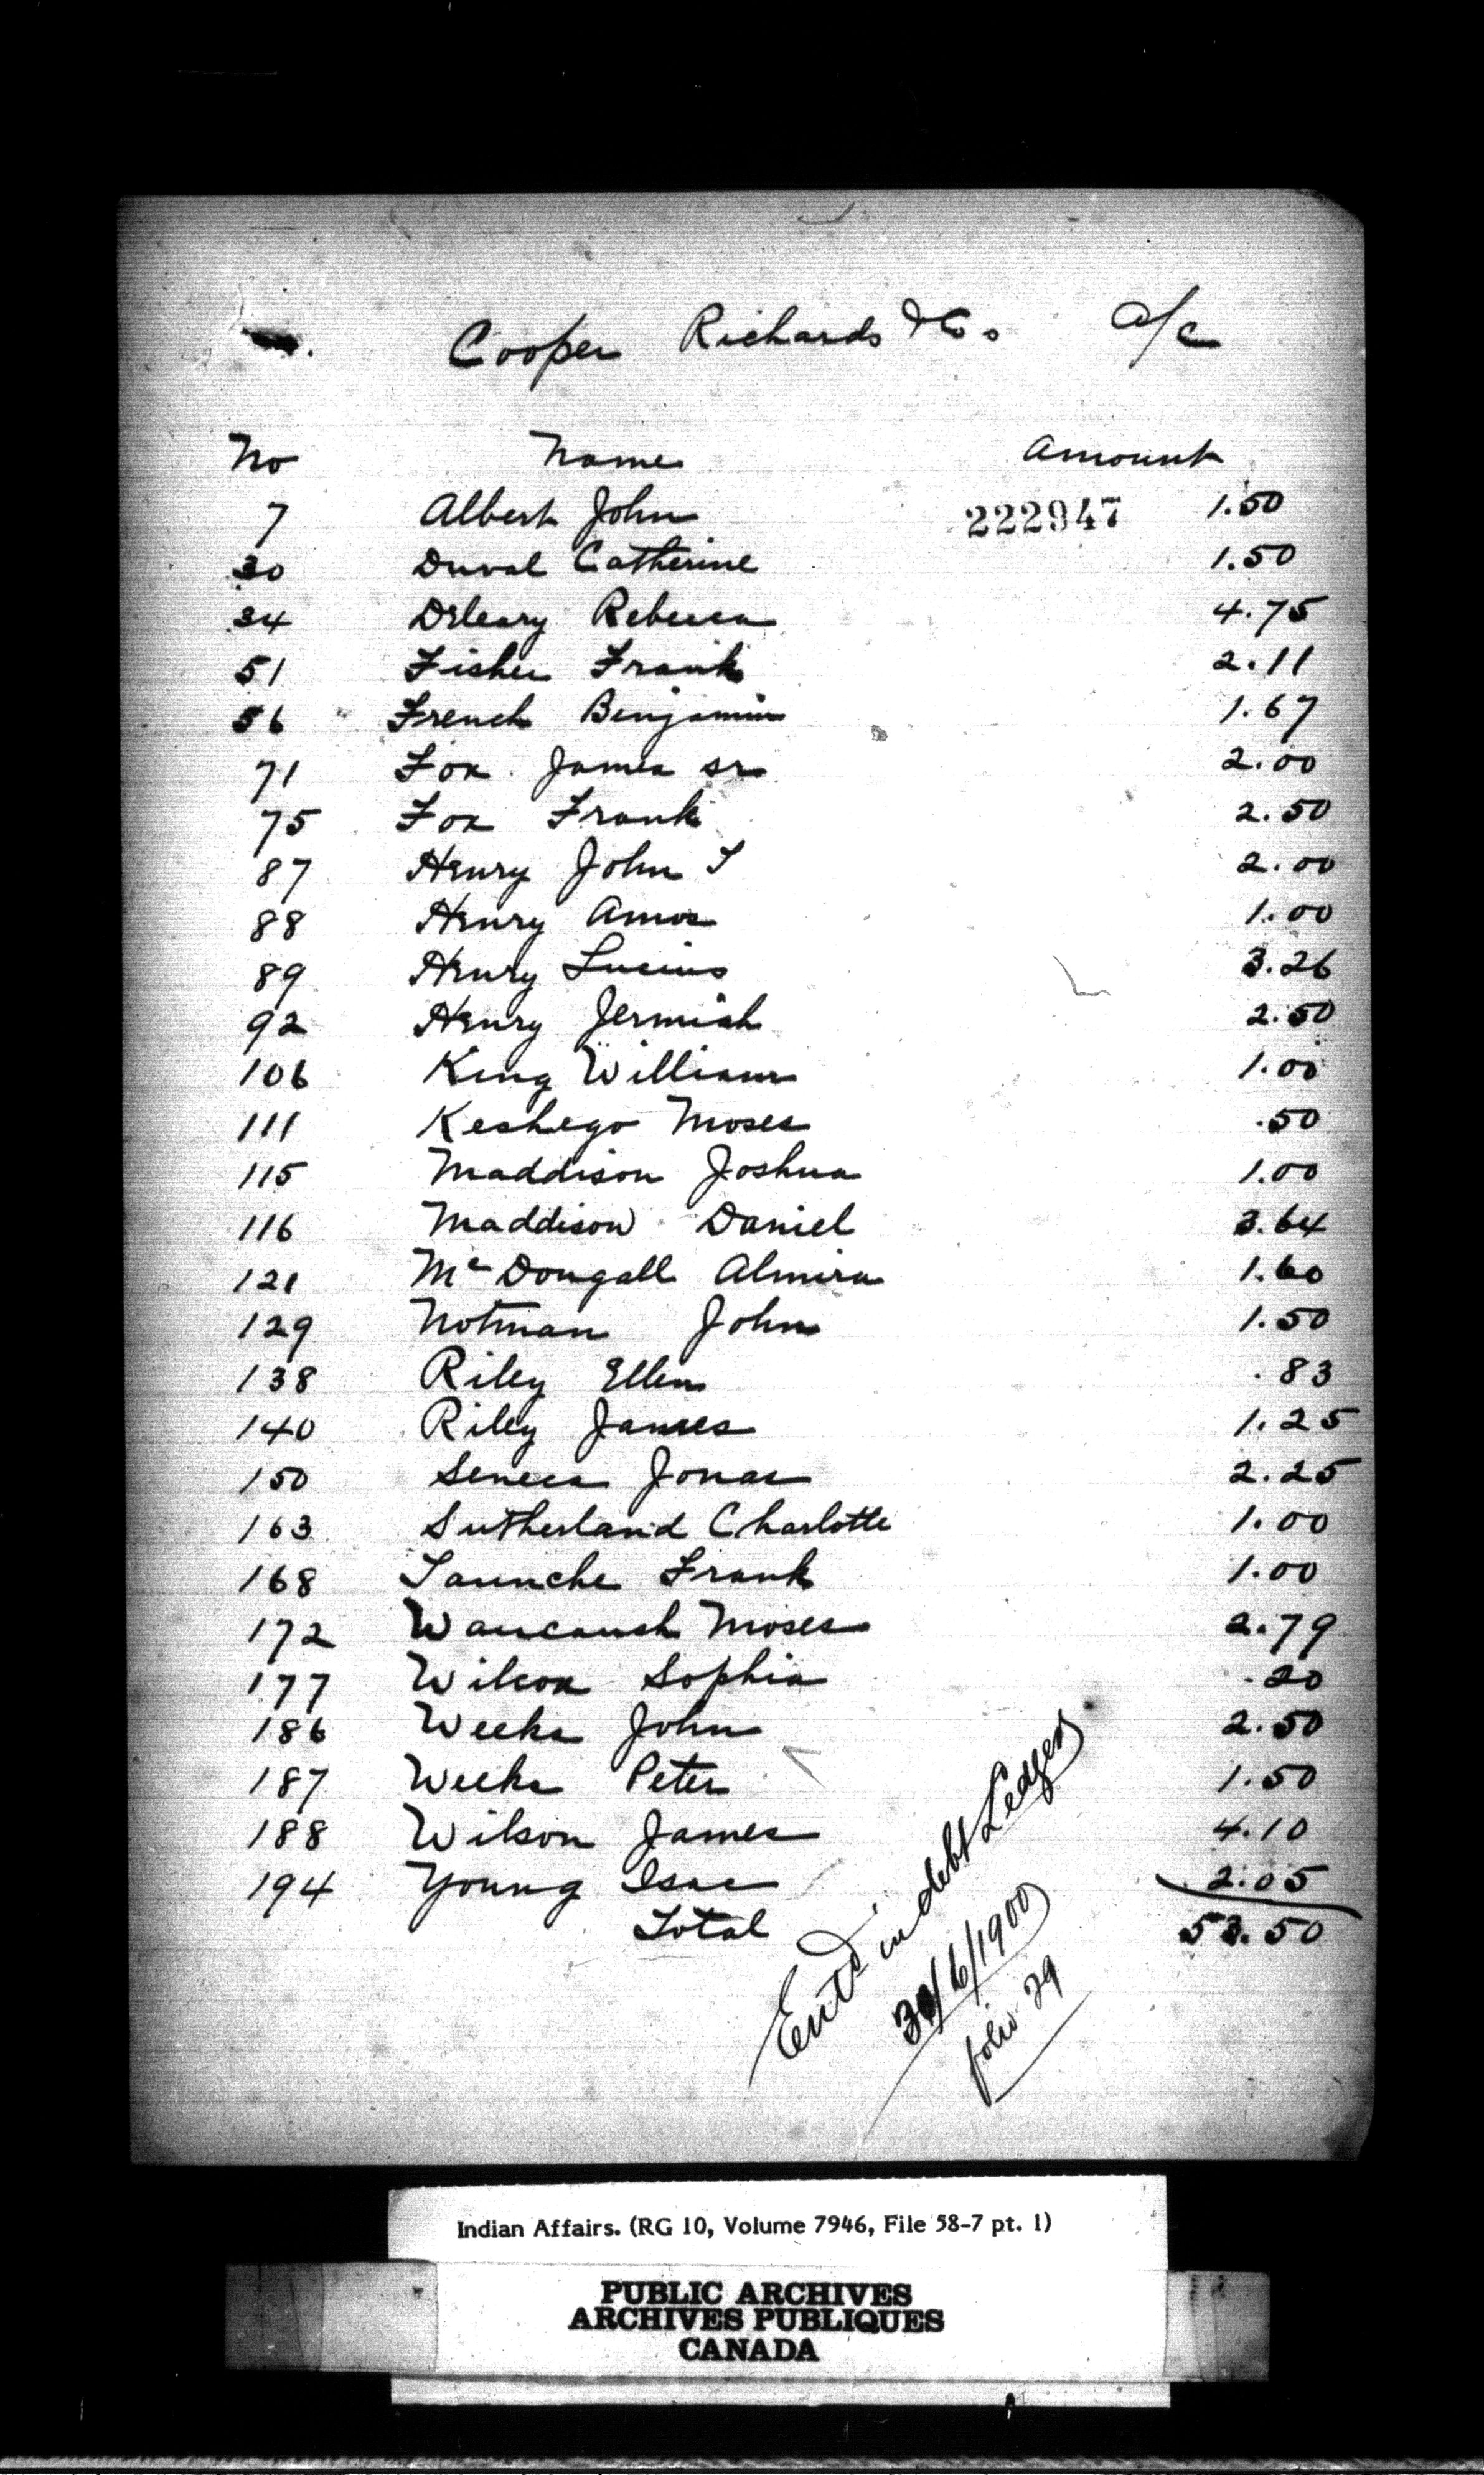 Cooper Richards & Co a/c
No Name Amount
222947
7 Albert John 1.50
30 Duval Catherine 1.50
34 Drleary Rebecca 4.75
51 Fisher Frank 2.11
56 French Benjamin 1.67
71 Fox James sr 2.00
75 Fox Frank 2.50
87 Henry John T 2.00
88 Henry Amos 1.00
89 Henry Lucius 3.26
92 Henry Jermiah 2.50
106 King William 1.00
111 Keshego Moses .50
115 Maddison Joshua 1.00
116 Maddison Daniel 3.64
121 McDougall Almira 1.60
129 Notman John 1.50
138 Riley Ellen .83
140 Riley James 1.25
150 Seneca Jonas 2.25
163 Sutherland Charlotte 1.00
168 Taunche Frank 1.00
172 Waucaush Moses 2.79
177 Wilcox Sophia .20
186 Weeks John 2.50
187 Weeks Peter 1.50
188 Wilson James 4.10
194 Young Isac 2.05
Total 53.50
Entd in debt Ledger
30/6/1900
folio 29
Indian Affairs. (RG 10, Volume 7946, File 58-7 pt. 1)
PUBLIC ARCHIVES
ARCHIVES PUBLIQUES
CANADA